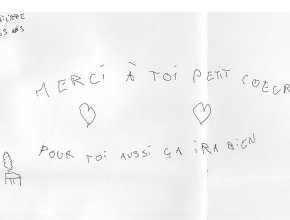 MERCi À TOi PETiT COEUR
POUR TOi AUSSi ÇA iRA BiEN